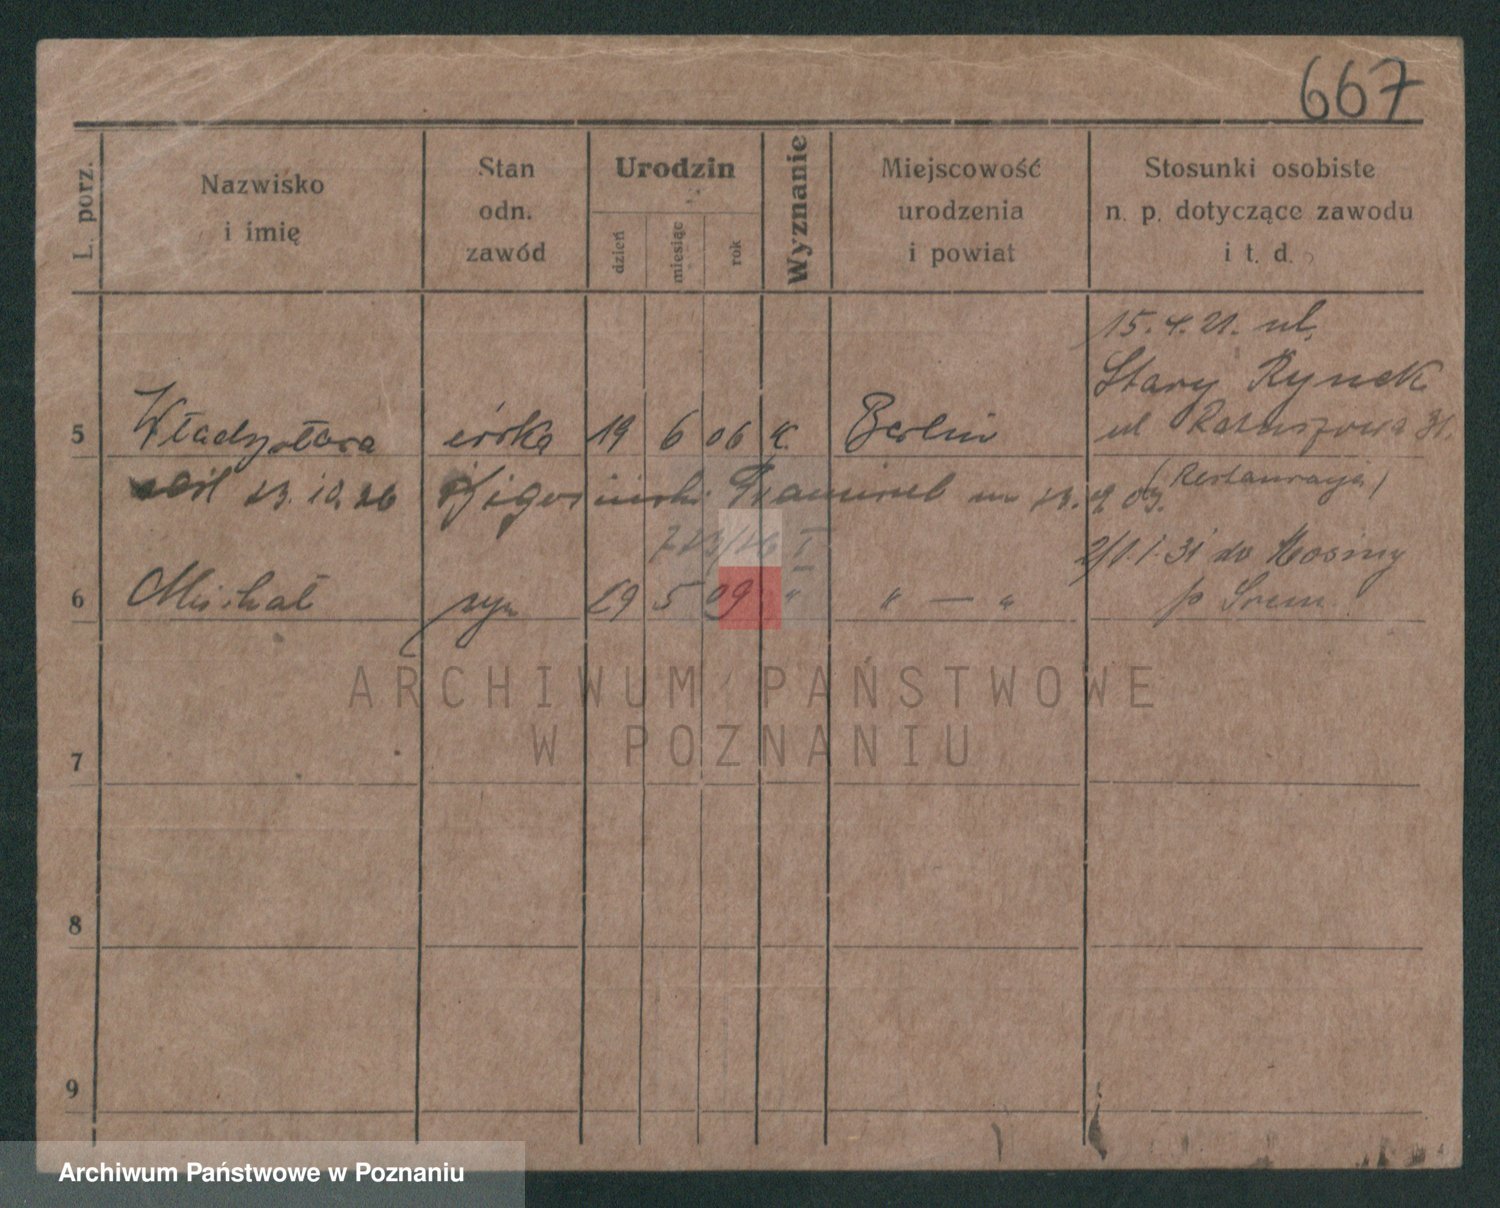 667
L. porz.
Nazwisko
i imię
Stan
odn.
zawód
Urodzin
dzień
miesiąc
rok
Wyznanie
Miejscowość
urodzenia
i powiat
Stosunki osobiste
n. p. dotyczące zawodu
i t. d.
15. 4. 21. ul.
Stary Rynek
5 Władysława córka 19 6 06 K. Berlin ul Ratuszowa 31.
(Restauracja)
23. 10. 26
2/1. 1. 31 do Mosiny
6 Michał syn 29 5 09 " " — " p Śrem
7
8
9
ARCHIWUM PAŃSTWOWE
W POZNANIU
Archiwum Państwowe w Poznaniu